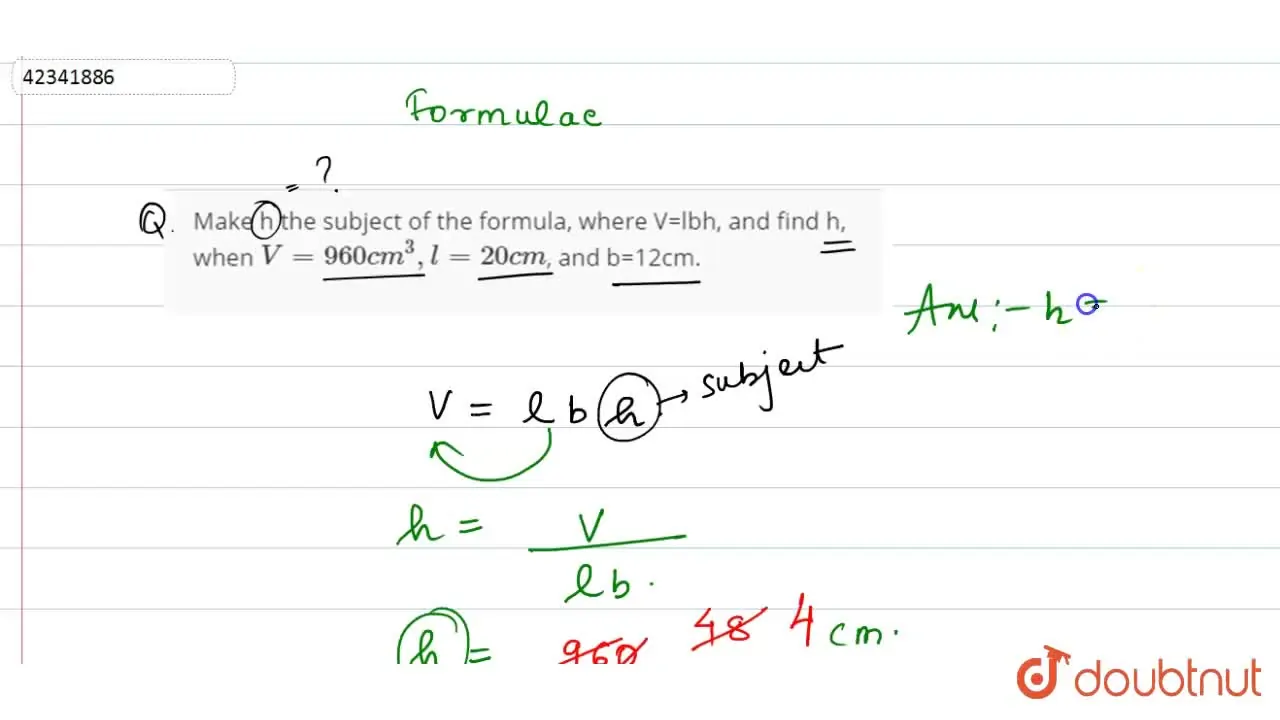 42341886
Formulae
= ?
Q. Make h the subject of the formula, where V=lbh, and find h,
when V = 960cm³, l = 20cm, and b=12cm.
Ans :- h =
V = l b h → subject
h = V
l b .
h = 960 48 4 cm.
doubtnut